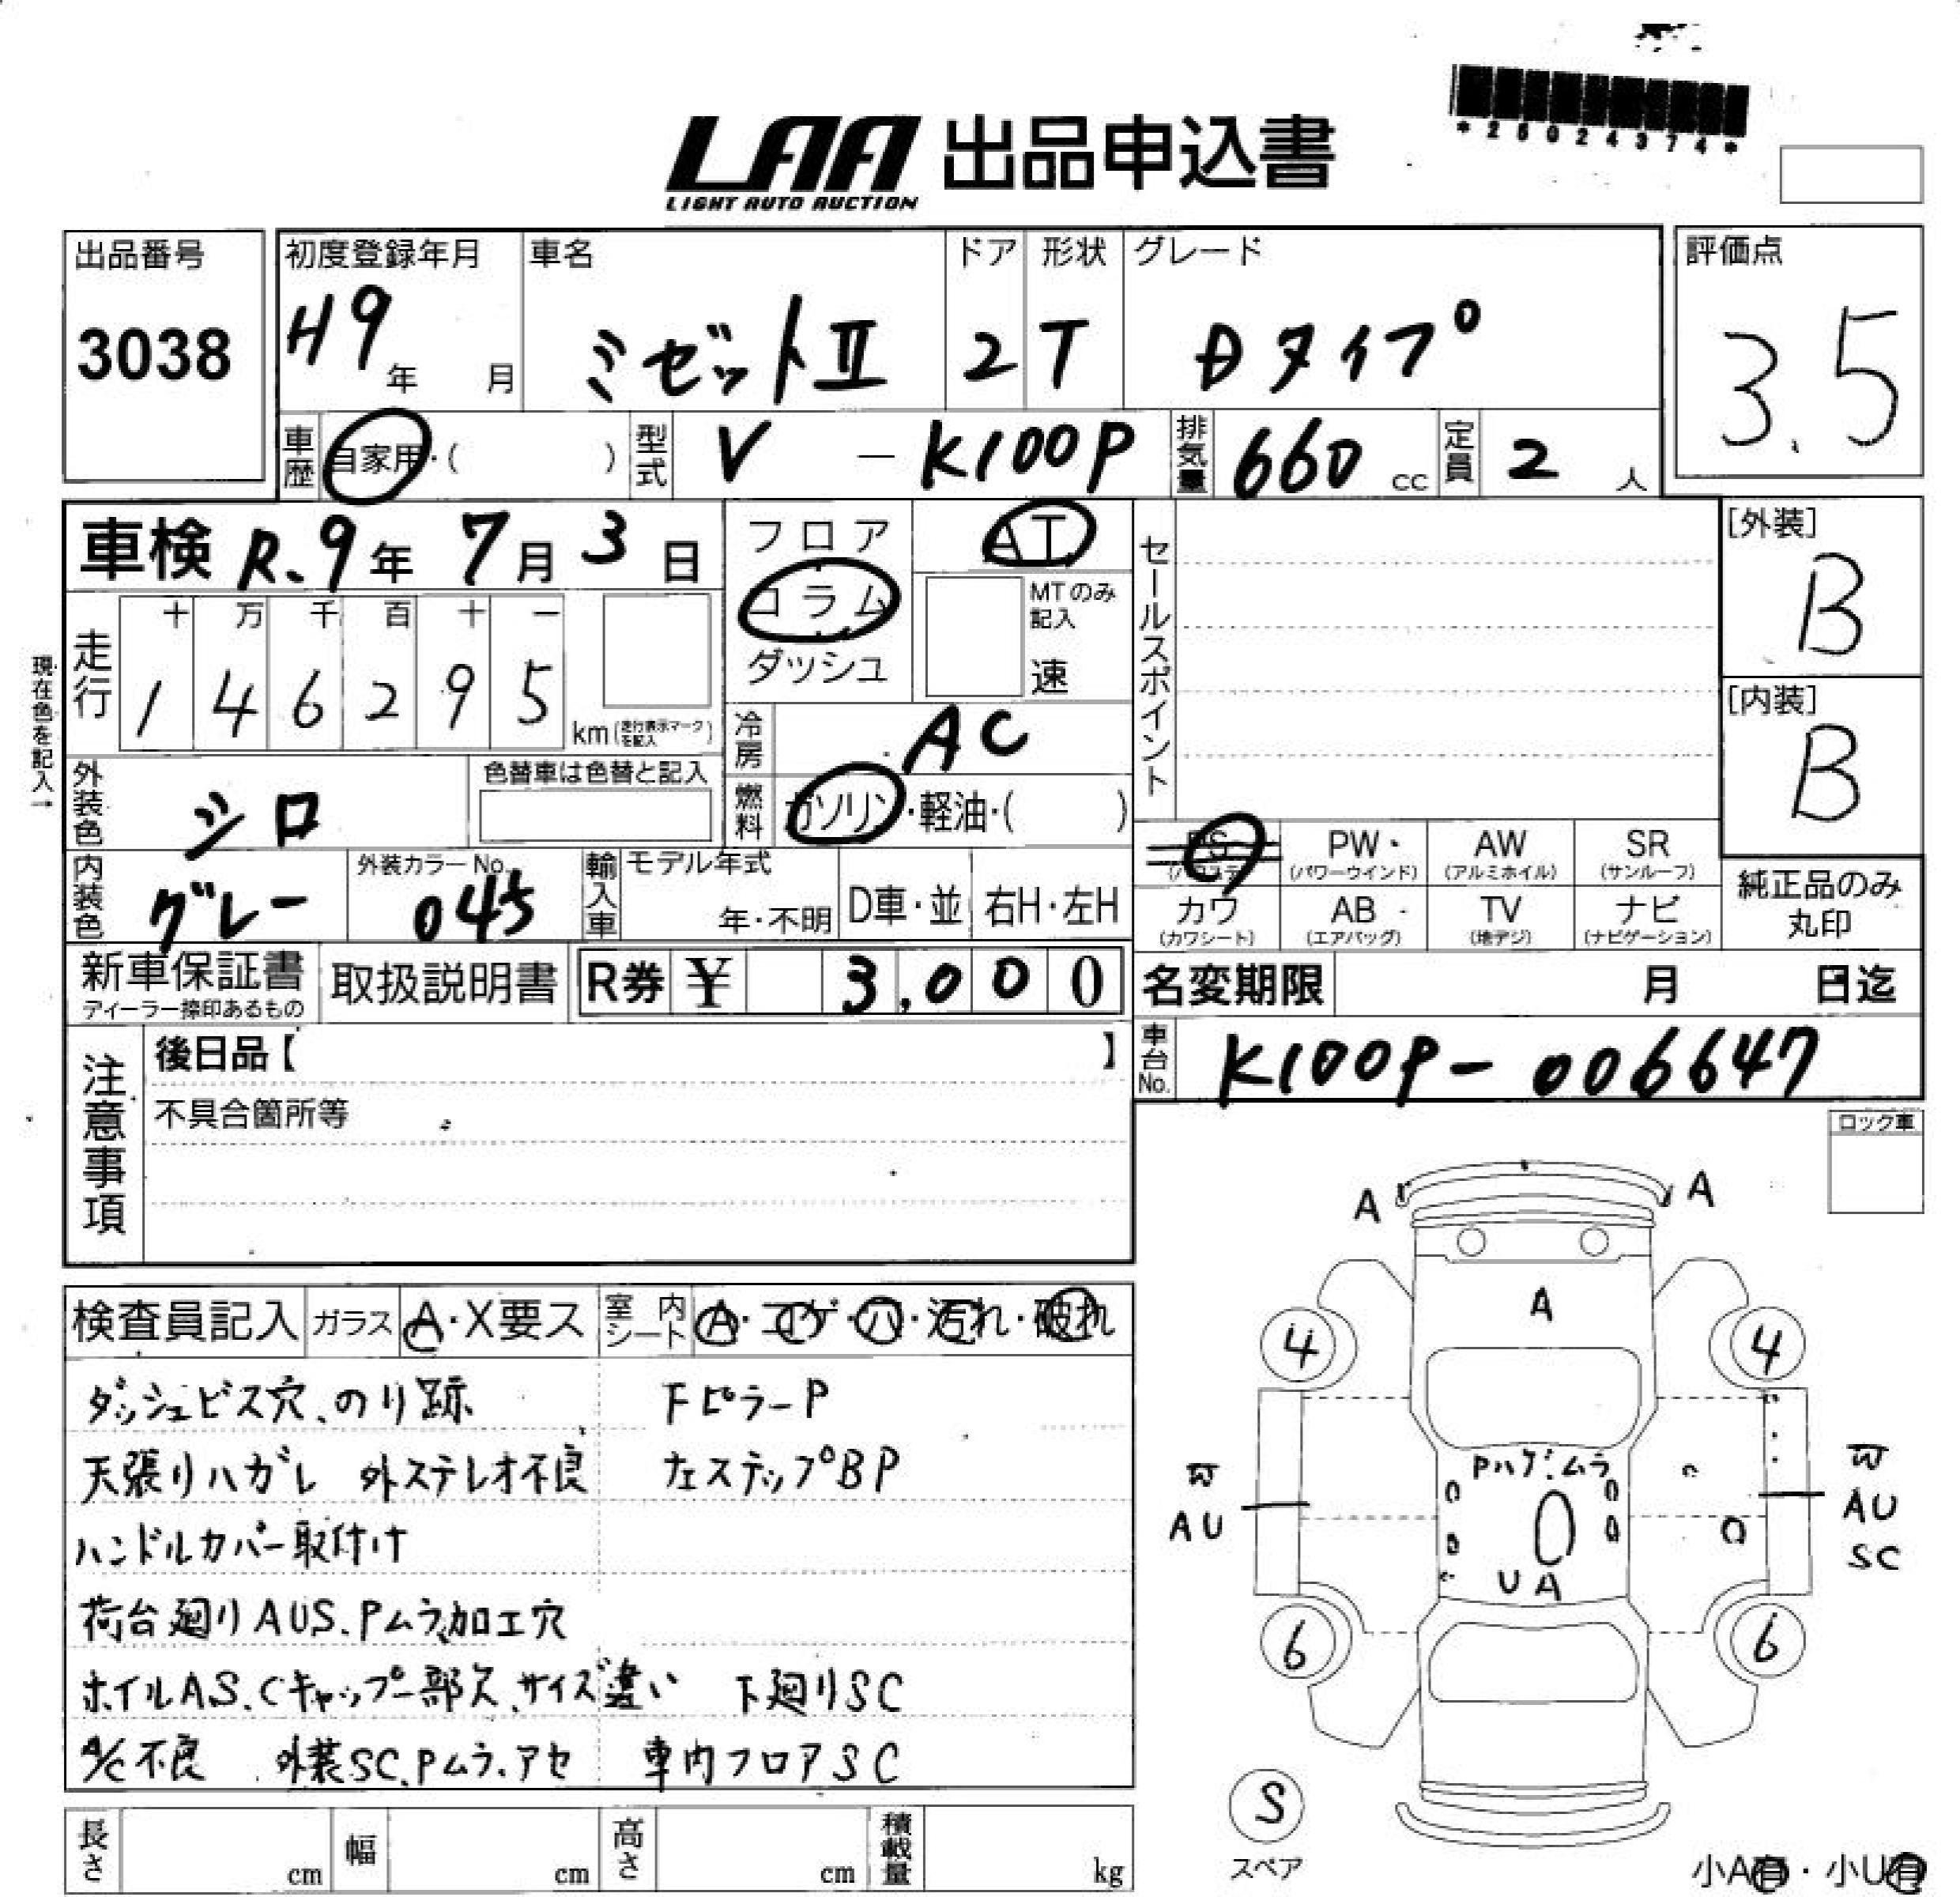 *25024374*
LAA 出品申込書
LIGHT AUTO AUCTION
出品番号 初度登録年月 車名 ドア 形状 グレード 評価点
3038 H9年 月 ミゼットⅡ 2 T Dタイプ 3.5
車歴 自家用・( ) 型式 V － K100P 排気量 660 cc 定員 2 人
車検 R.9年 7月 3日 フロア AT セールスポイント [外装]
コラム MTのみ記入 B
十 万 千 百 十 一
走行 1 4 6 2 9 5 km(走行表示マークを記入) ダッシュ 速 [内装]
現在色を記入→
冷房 AC B
外装色 シロ 色替車は色替と記入 燃料 ガソリン・軽油・( )
PS PW AW SR
(パワステ) (パワーウインド) (アルミホイル) (サンルーフ)
内装色 グレー 外装カラーNo. 045 輸入車 モデル年式 年・不明 D車・並 右H・左H 純正品のみ
カワ AB TV ナビ 丸印
(カワシート) (エアバッグ) (地デジ) (ナビゲーション)
新車保証書 取扱説明書 R券 ￥ 3,000 名変期限 月 日迄
ディーラー捺印あるもの
注意事項 後日品【 】 車台No. K100P-006647
不具合箇所等 ロック車
A A
検査員記入 ガラス A・X要ス 室内シート A・コゲ・穴・汚れ・破れ
A
4 4
ダッシュビス穴、のり跡 FピラーP
天張りハガレ 外ステレオ不良 左ステップBP
Pハゲ、ムラ
AU AU
ハンドルカバー取付け SC
UA
荷台廻りAUS、Pムラ、加工穴
6 6
ホイルAS、Cキャップ一部欠、サイズ違い 下廻りSC
A/C不良 外装SC、Pムラ、アセ 車内フロアSC
S
スペア
長さ cm 幅 cm 高さ cm 積載量 kg
小A有・小U有